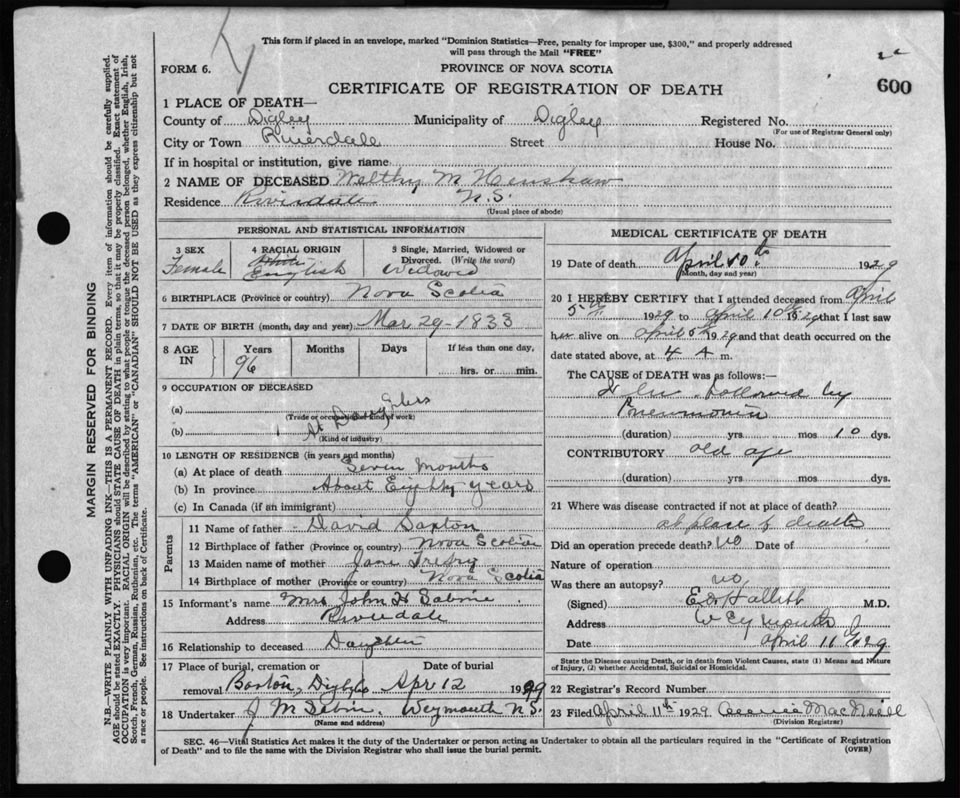 This form if placed in an envelope, marked "Dominion Statistics—Free, penalty for improper use, $300," and properly addressed
will pass through the Mail "FREE"
FORM 6.
PROVINCE OF NOVA SCOTIA
600
CERTIFICATE OF REGISTRATION OF DEATH
1 PLACE OF DEATH—
County of Digby Municipality of Digby Registered No.
(For use of Registrar General only)
City or Town Riverdale Street House No.
If in hospital or institution, give name
2 NAME OF DECEASED Welthy M Henshaw
Residence Riverdale N.S.
(Usual place of abode)
PERSONAL AND STATISTICAL INFORMATION
3 SEX 4 RACIAL ORIGIN 5 Single, Married, Widowed or
Divorced. (Write the word)
Female English Widowed
6 BIRTHPLACE (Province or country) Nova Scotia
7 DATE OF BIRTH (month, day and year) Mar 29-1833
8 AGE IN Years Months Days If less than one day,
96 hrs. or min.
9 OCCUPATION OF DECEASED
(a)
(Trade or occupation or kind of work)
(b) At Daughters
(Kind of industry)
10 LENGTH OF RESIDENCE (in years and months)
(a) At place of death Seven Months
(b) In province About Eighty years
(c) In Canada (if an immigrant)
Parents
11 Name of father David Saxton
12 Birthplace of father (Province or country) Nova Scotia
13 Maiden name of mother Jane
14 Birthplace of mother (Province or country) Nova Scotia
15 Informant's name Mrs John H Sabine
Address Riverdale
16 Relationship to deceased Daughter
17 Place of burial, cremation or Date of burial
removal Barton, Digby Apr 12 1929
18 Undertaker J M Sabin Weymouth N.S.
(Name and address)
MEDICAL CERTIFICATE OF DEATH
19 Date of death April 10th 1929
(Month, day and year)
20 I HEREBY CERTIFY that I attended deceased from April
5th 1929 to April 10th 1929 that I last saw
her alive on April 5th 1929 and that death occurred on the
date stated above, at 4 A m.
The CAUSE of DEATH was as follows:—
followed by
Pneumonia
(duration) yrs. mos 10 dys.
CONTRIBUTORY old age
(duration) yrs. mos dys.
21 Where was disease contracted if not at place of death?
at place of death
Did an operation precede death? No Date of
Nature of operation
Was there an autopsy? no
(Signed) M.D.
Address Weymouth
Date April 11 1929
State the Disease causing Death, or in death from Violent Causes, state (1) Means and Nature
of Injury, (2) whether Accidental, Suicidal or Homicidal.
22 Registrar's Record Number
23 Filed April 11th 1929 MacNeill
(Division Registrar)
SEC. 46—Vital Statistics Act makes it the duty of the Undertaker or person acting as Undertaker to obtain all the particulars required in the "Certificate of Registration
of Death" and to file the same with the Division Registrar who shall issue the burial permit.
(OVER)
MARGIN RESERVED FOR BINDING
N.B.—WRITE PLAINLY WITH UNFADING INK—THIS IS A PERMANENT RECORD. Every item of information should be carefully supplied.
AGE should be stated EXACTLY. PHYSICIANS should STATE CAUSE OF DEATH in plain terms, so that it may be properly classified. Exact statement of
OCCUPATION is very important. RACIAL ORIGIN will be described by stating to what people or tongue the deceased person belonged, whether English, Irish,
Scotch, French, German, Russian, Ruthenian, etc. The terms "AMERICAN" or "CANADIAN" SHOULD NOT BE USED as they express citizenship but not
a race or people. See instructions on back of Certificate.